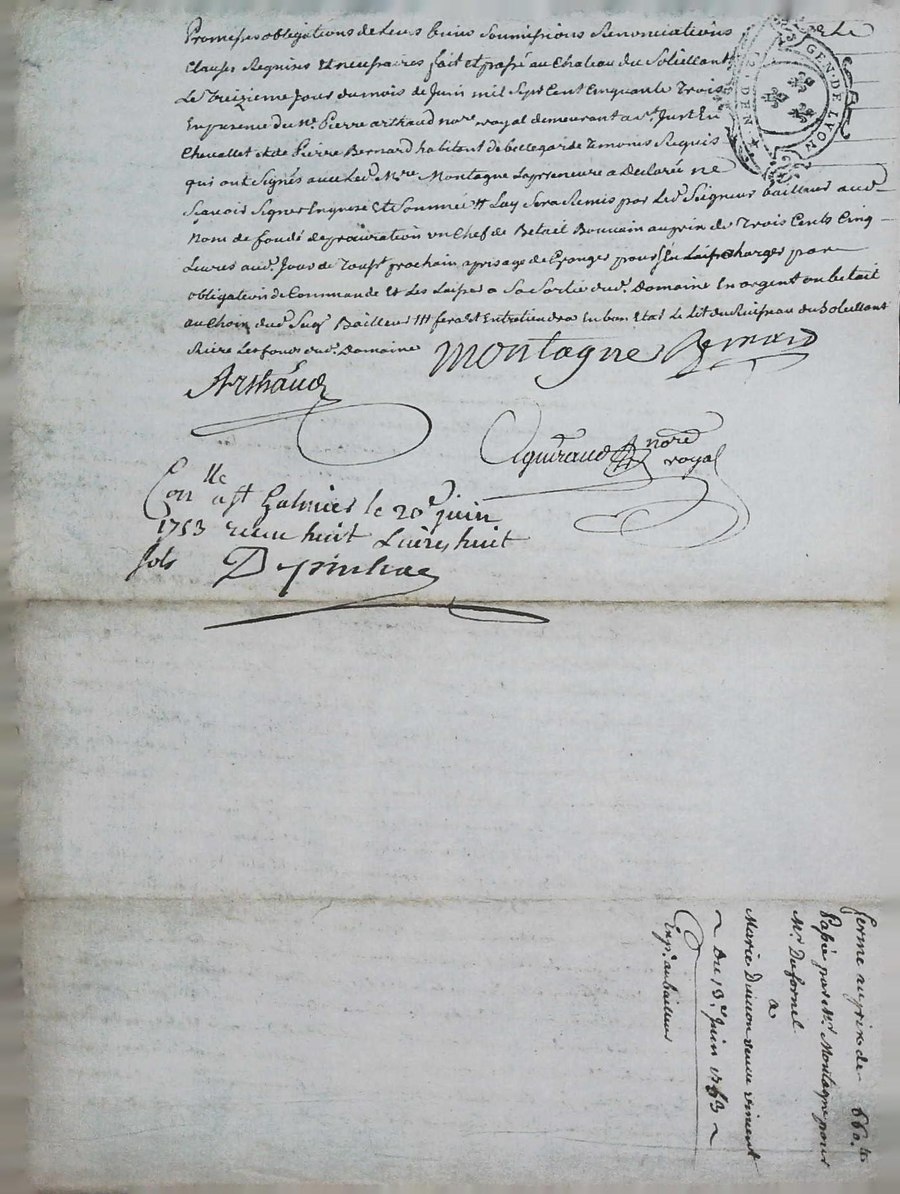 Promesses obligations de leurs biens soumissions Renonciations
Clauses Requises et necessaires fait et passé au Chateau du Soleillant
Le Treizieme Jour du mois de Juin mil Sept Cent Cinquante Trois
En presence du Sr. Pierre arthaud nore royal demeurant a St. Just En
Chevallet et de Pierre Bernard habitent de bellegarde temoins Requis
qui ont signés avec led. Mre Montagne La preneure a declarée ne
sçavoir signer Enquise et Sommée # Luy sera Remis par led. Seigneur bailleur aud.
Nom de fondé de procuration un Chef de Betail Bouvain au prix de Trois Cents Cinq
Livres aud. Jour de Toust prochain
obligation de Commande Et Les Laisser a Sa Sortie dud. Domaine En argent ou betail
au Choix dud. Seigr Bailleur fera et Entretiendra En bon Etat Le Lit du Ruisseau du Soleillant
Riere Les fonds dud. Domaine Montagne Bernard
Arthaud
nore
royal
Conlle a St Galmier le 20e juin
1753 receu huit Livres huit
sols
GEN. DE LYON
2. DEN.
ferme au prix de 660. ll
Passé par Mre. Montagne pour
Mr. Duformel
a
Marie veuve vincent
~ Du 13e. Juin 1753 ~
Exp. au bailleur